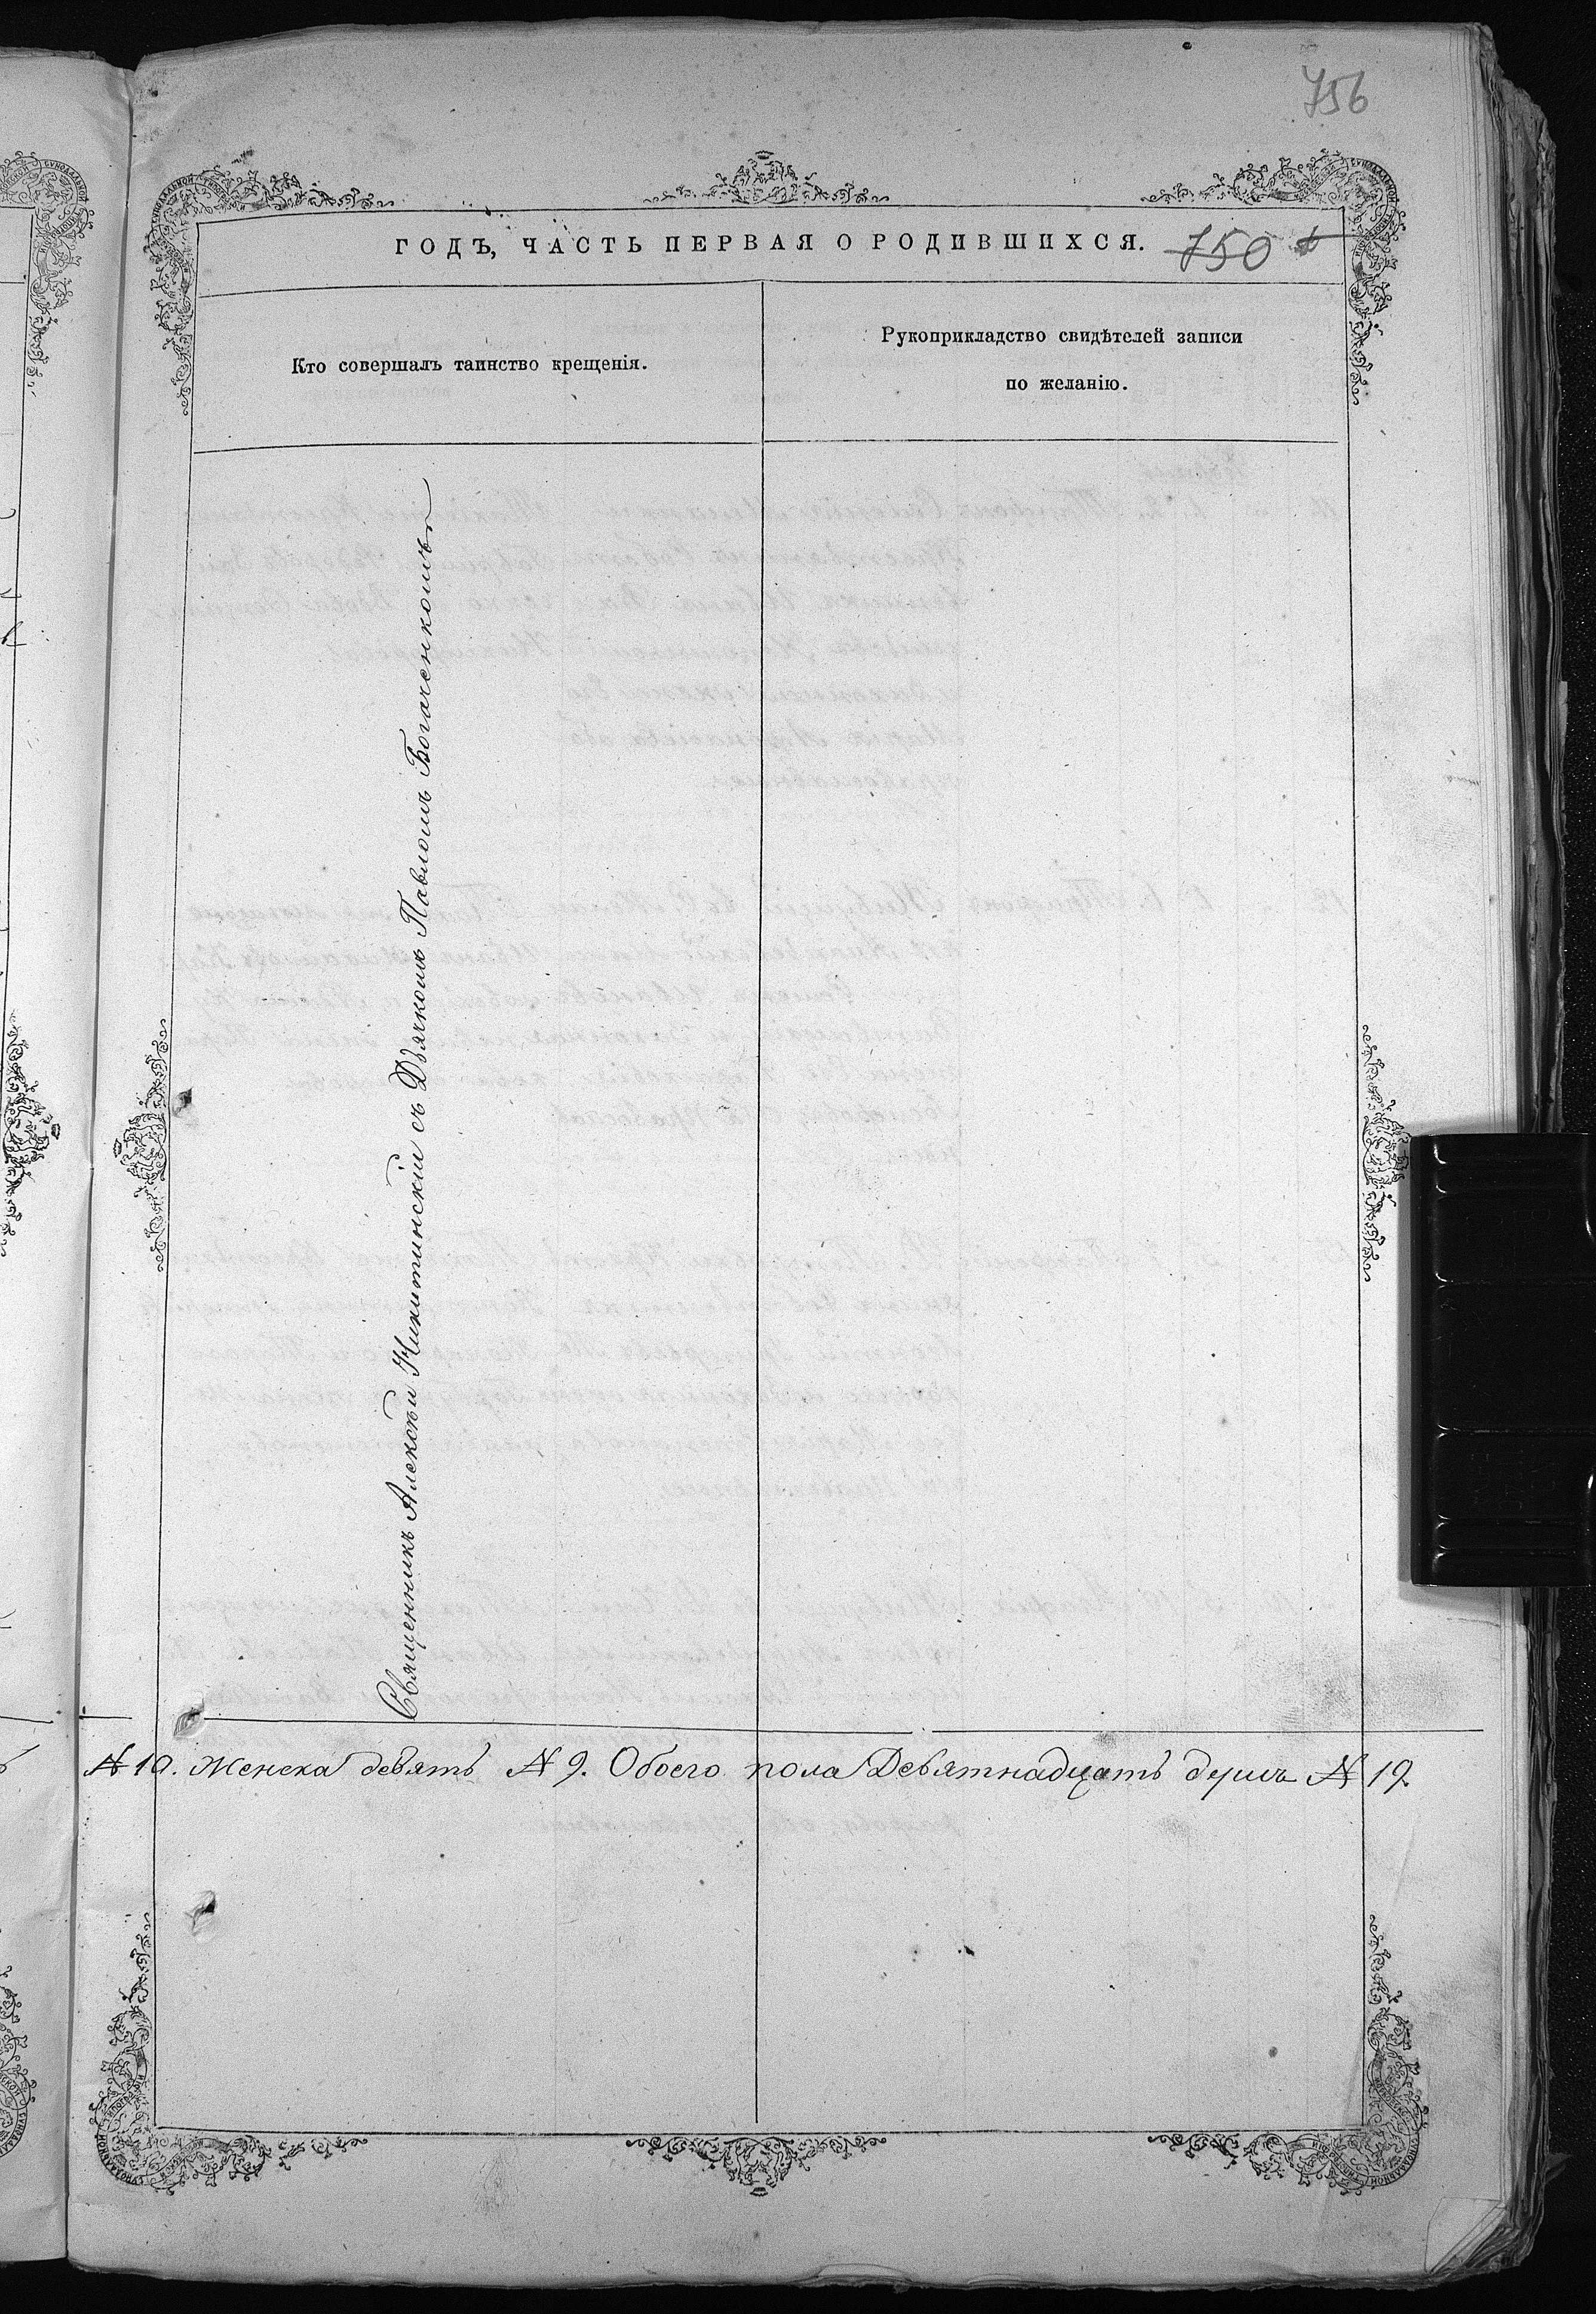 756
ГОДЪ, ЧАСТЬ ПЕРВАЯ О РОДИВШИХСЯ. 750
Кто совершалъ таинство крещенія.
Рукоприкладство свидѣтелей записи
по желанію.
Священникъ Алексѣй Никитинскій съ Дьячкомъ Павломъ Богаченкомъ
№ 10. Женска девять № 9. Обоего пола Девятнадцать душъ № 19.